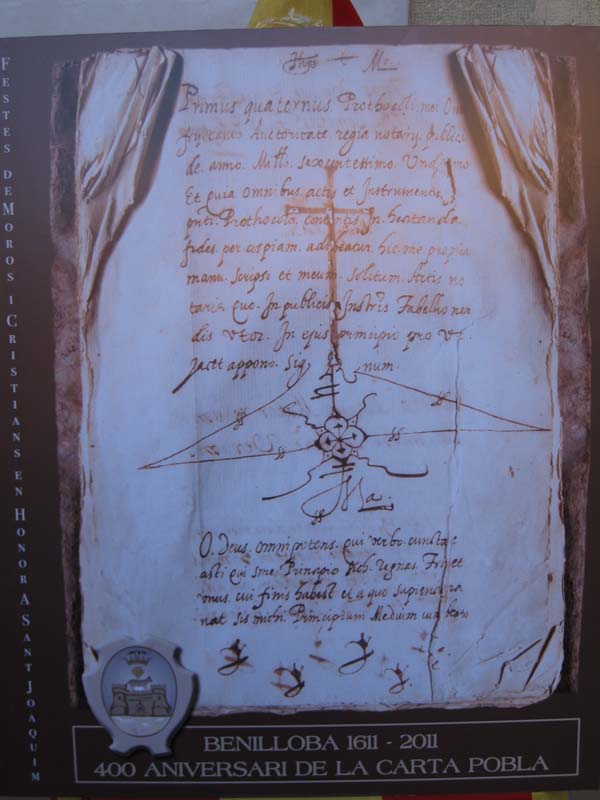 FESTES DE MOROS I CRISTIANS EN HONOR A SANT JOAQUIM
Primus quaternus Prothocolli per
Auctoritate regia notarij Publici
de anno. Mill.o sexcentessimo. Undecimo
Et quia omnibus actis et Instrumentis
Prothocolo contentis In
fides per adhibeatur hic me propria
manu scripsi et meum solitum Artis no
tariæ que In publicis Instris Tabellionen
dis vtor. In ejus principio pro vt
jacet appono. Sig num.
O. Deus. omnipotens. qui verbo. cuncta
asti qui sine Principio
cui finis et a quo sapiens
nat sis michi Principium Medium
BENILLOBA 1611 - 2011
400 ANIVERSARI DE LA CARTA POBLA